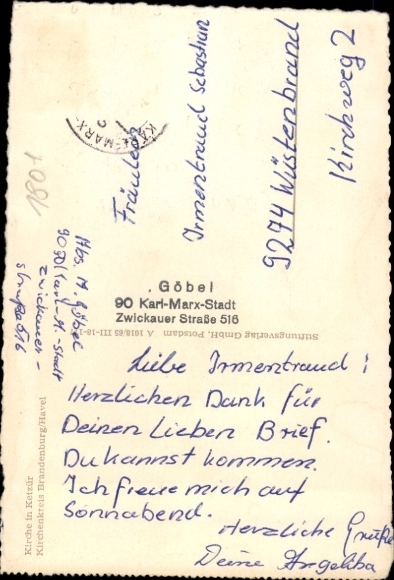 Fräulein
Irmentraud Sebastian
9274 Wüstenbrand
Kirchweg 2
KARL-MARX-
1801
Abs. A. Göbel
90 Karl-M.-Stadt
Zwickauer-
straße 516
Göbel
90 Karl-Marx-Stadt
Zwickauer Straße 516
Stiftungsverlag GmbH, Potsdam A 1018/65 III-18-
Liebe Irmentraud!
Herzlichen Dank für
Deinen Lieben Brief.
Du kannst kommen.
Ich freue mich auf
Sonnabend.
Herzliche Grüße
Deine Angelika
Kirche in Ketzür
Kirchenkreis Brandenburg/Havel